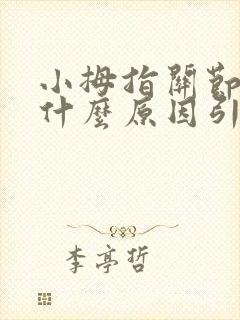 小拇指關節
什麼原因引
李亭哲